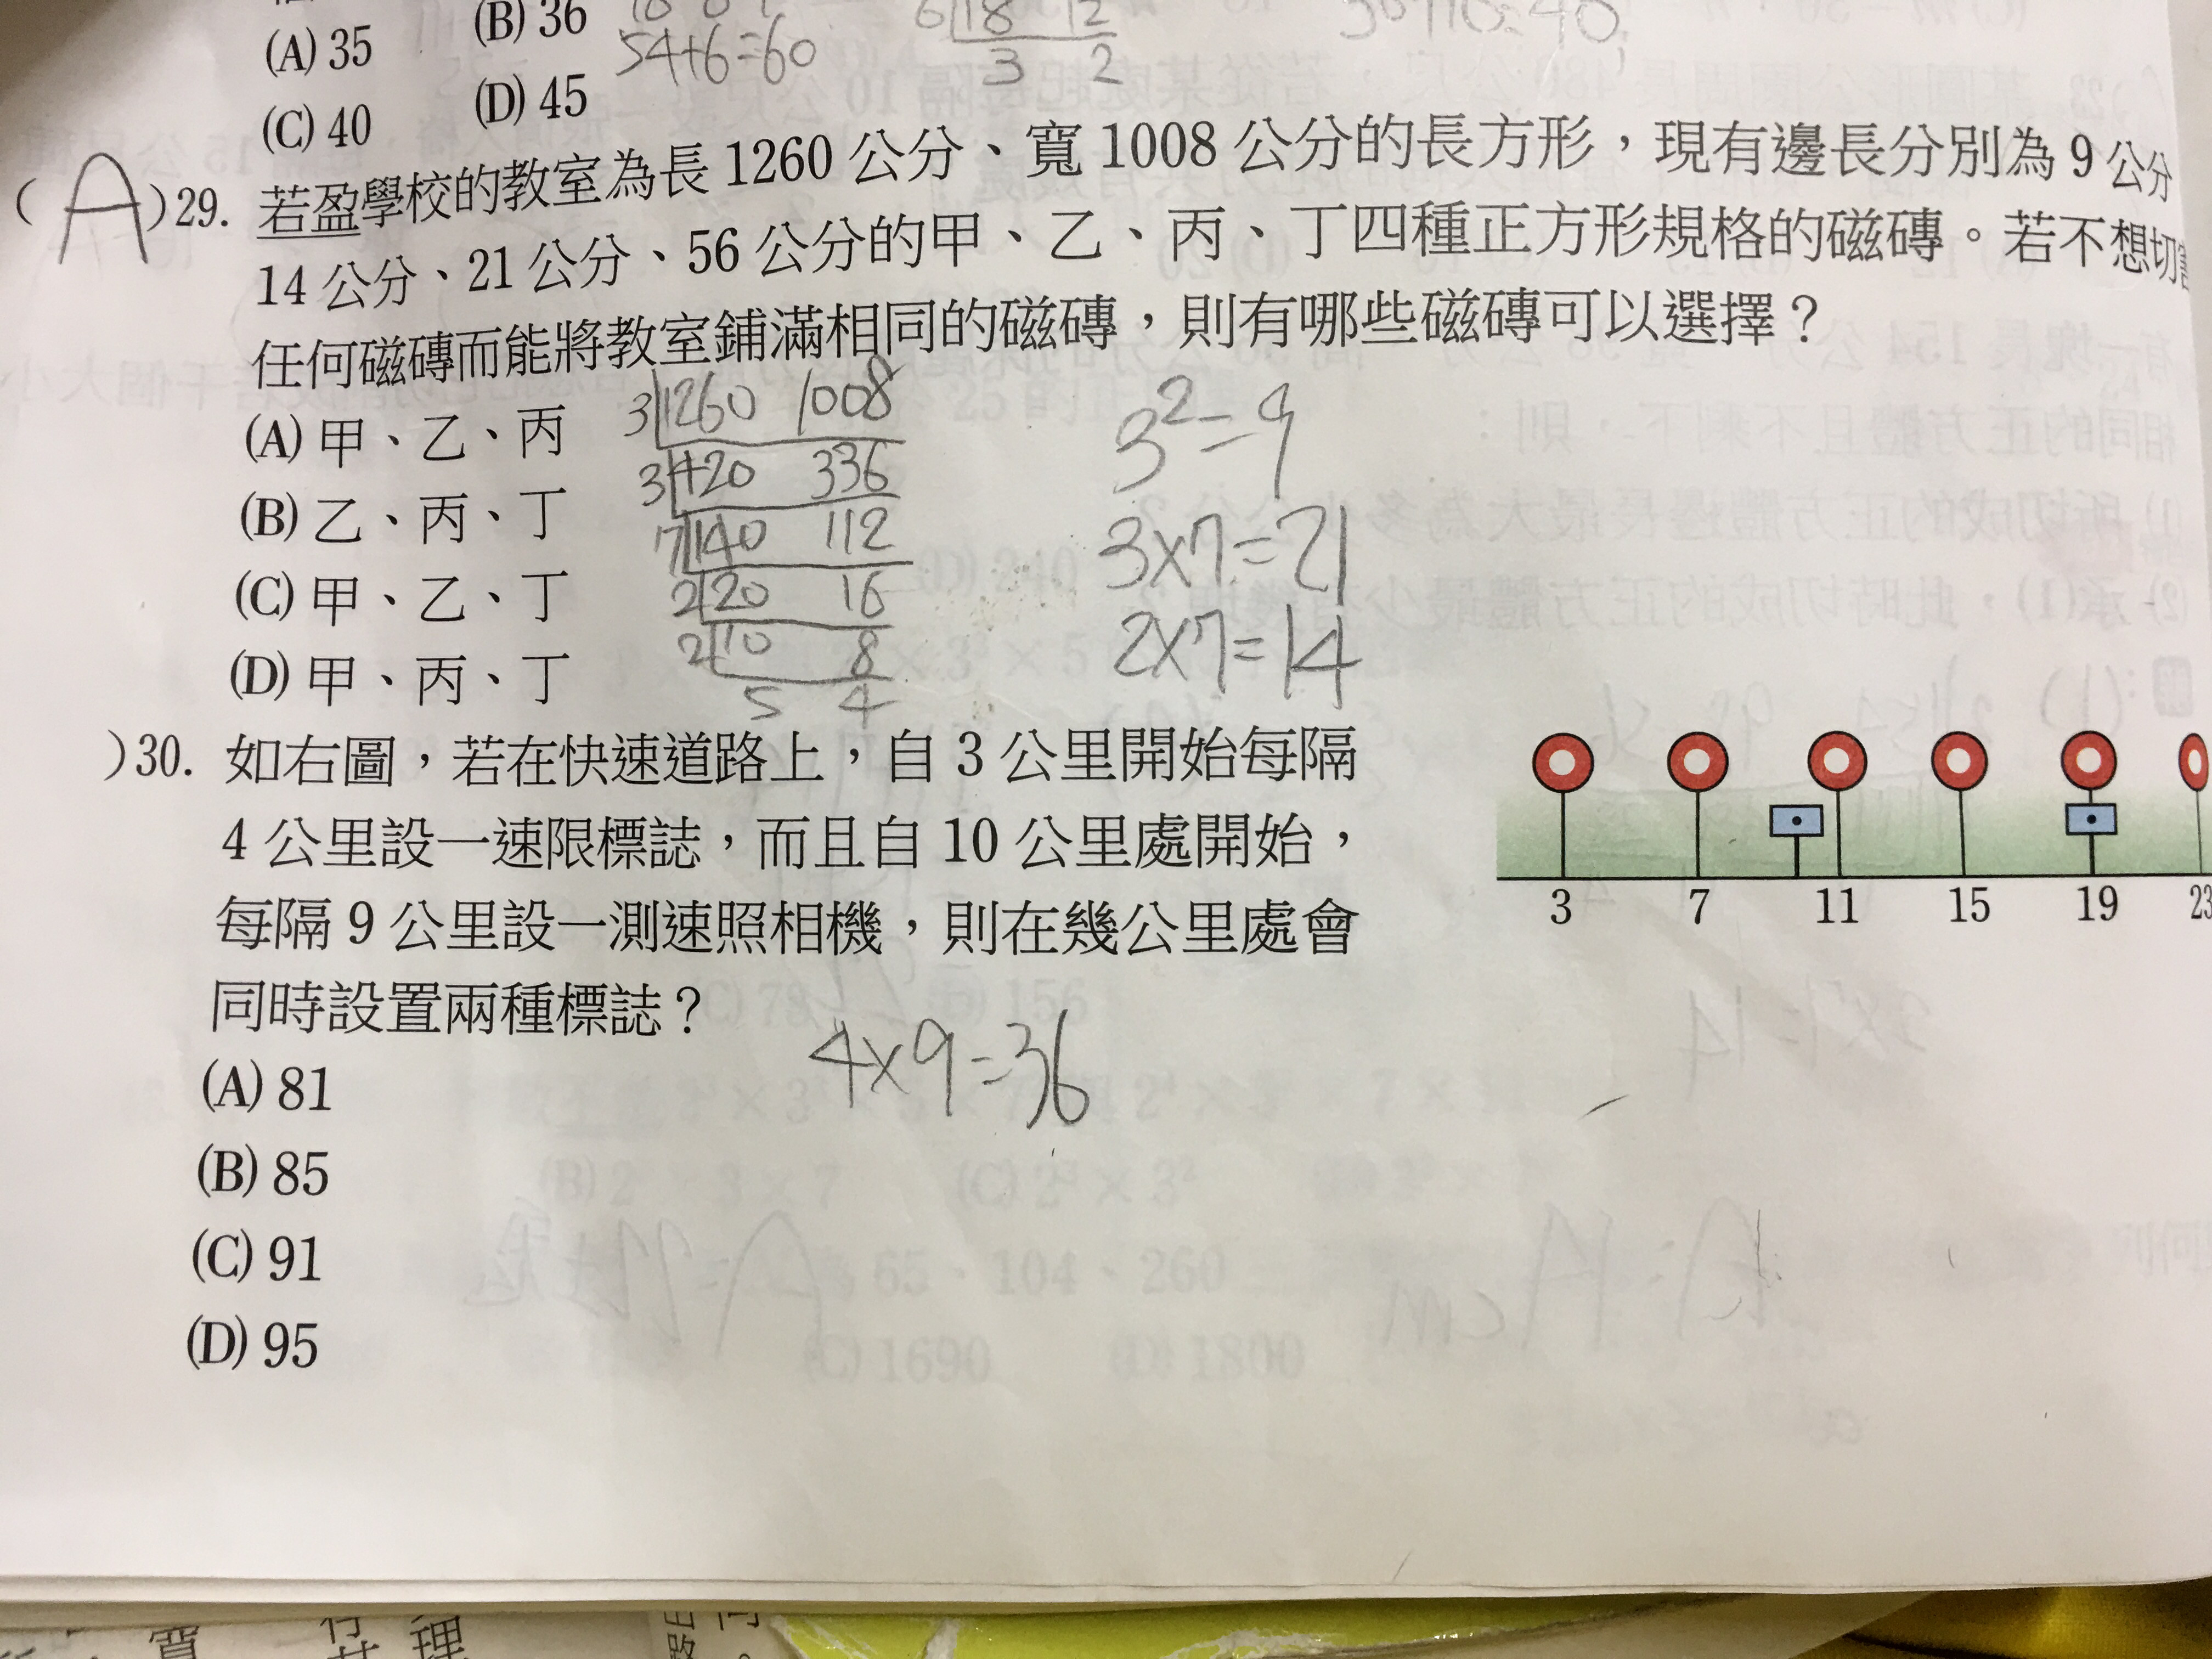 (A) 35 (B) 36
(C) 40 (D) 45
54+6=60
6 18 12
3 2
(A) 29. 若盈學校的教室為長 1260 公分、寬 1008 公分的長方形，現有邊長分別為 9 公分
14 公分、21 公分、56 公分的甲、乙、丙、丁四種正方形規格的磁磚。若不想切割
任何磁磚而能將教室鋪滿相同的磁磚，則有哪些磁磚可以選擇？
(A) 甲、乙、丙
(B) 乙、丙、丁
(C) 甲、乙、丁
(D) 甲、丙、丁
3 1260 1008
3 420 336
7 140 112
2 20 16
2 10 8
5 4
3²=9
3×7=21
2×7=14
)30. 如右圖，若在快速道路上，自 3 公里開始每隔
4 公里設一速限標誌，而且自 10 公里處開始，
每隔 9 公里設一測速照相機，則在幾公里處會
同時設置兩種標誌？
3 7 11 15 19 23
4×9=36
(A) 81
(B) 85
(C) 91
(D) 95
寬
理